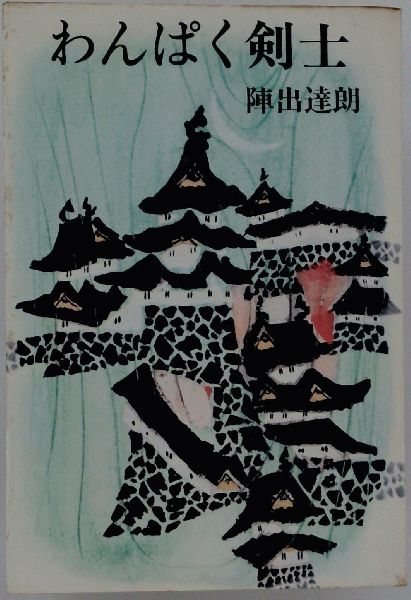 わんぱく剣士
陣出達朗